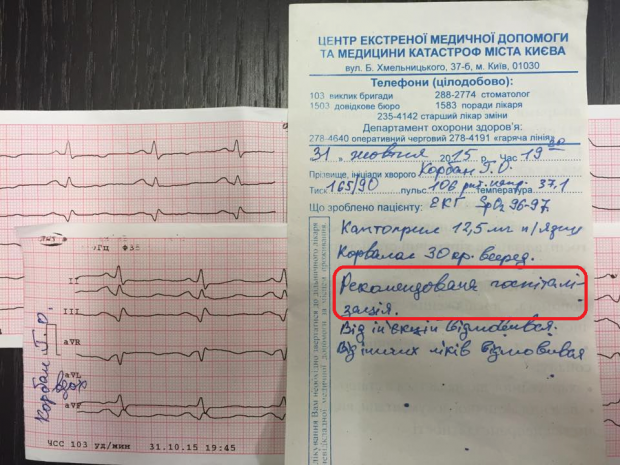 ЦЕНТР ЕКСТРЕНОЇ МЕДИЧНОЇ ДОПОМОГИ
ТА МЕДИЦИНИ КАТАСТРОФ МІСТА КИЄВА
вул. Б. Хмельницького, 37-б, м. Київ, 01030
Телефони (цілодобово):
103 виклик бригади 288-2774 стоматолог
1503 довідкове бюро 1583 поради лікаря
235-4142 старший лікар зміни
Департамент охорони здоров'я:
278-4640 оперативний черговий 278-4191 «гаряча лінія»
31 „ жовтня 2015 р. Час 19 00
Прізвище, ініціали хворого Корбан Г.О.
Тиск 165/90 пульс 106 температура 37,1
Що зроблено пацієнту: ЕКГ SpO2 96-97
Каптоприл 12,5 мг п/язик
Корвалол 30 кр. всеред.
Рекомендована госпіталі-
зація.
Від ін'єкцій відмовився.
Від інших ліків відмовився
II
III
aVR
aVL
aVF
Корбан Г.О.
вдох
ЧСС 103 уд/мин 31.10.15 19:45